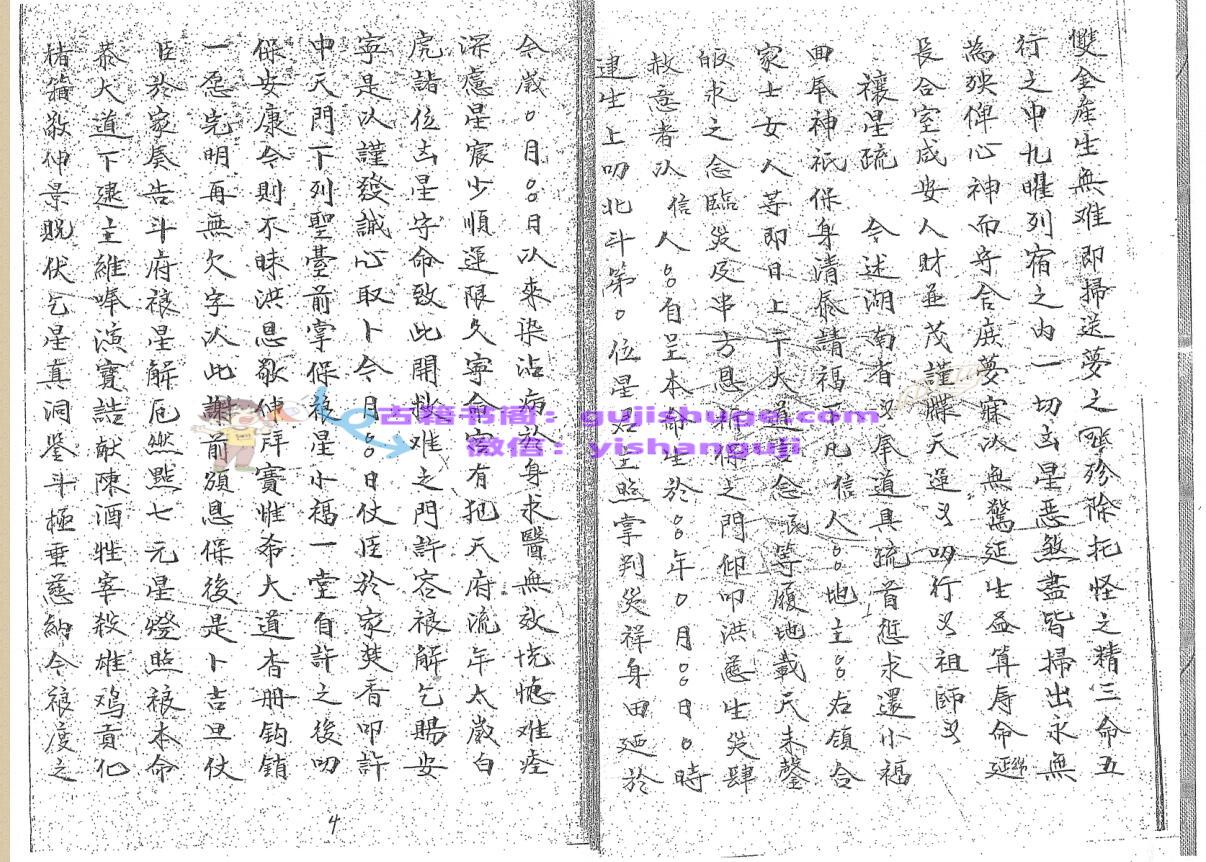 雙全産生無难即掃送夢之 殄除托怪之精三命五
行之中九曜列宿之内一切凶星惡煞盡皆掃出永無
為殃俾心神而守合庶夢寐以無驚延生益算寿命延
長合室咸安人財並茂謹牒天運又叩行又祖師又
禳星疏 今述湖南省又奉道具疏首愆求還小福
田奉神祇保身清泰請福 凡信人○○地主○○右領合
家士女人等即日上干大道 念民等履地載天未馨
皈求之念臨災及 方思 之門仰叩洪慈生災肆
赦意者以信人○○自呈本命生於○○年○月○○日○時
建生上叩北斗第○位星君主照掌判災祥身田 於
今歲○月○○日以來染沾病於身求醫無效恍惚难痊
深慮星宸少順運限久寧命宫有犯天府流年太歲白
虎諸位凶星守命致此開 难之門許容禳解乞賜安
寧是以謹發誠心取卜今月○○日仗臣於家焚香叩許
中天門下列聖臺前掌保禳星小福一堂自許之後叨
保安康今則不昧洪恩敬伸拜賽惟希大道杳册钩銷
一 先明再無欠字以此 前須恩保後是卜吉旦仗
臣於家奏告斗府禳星解厄燃點七元星燈照禳本命
恭大道下 主維 演寶誥献陳酒牲宰殺雄鸡貢化
楮箔敬伸景貺伏乞星真洞鉴斗極垂慈納今禳度之
4
古籍书阁：gujishuge.com
微信：yishanguji